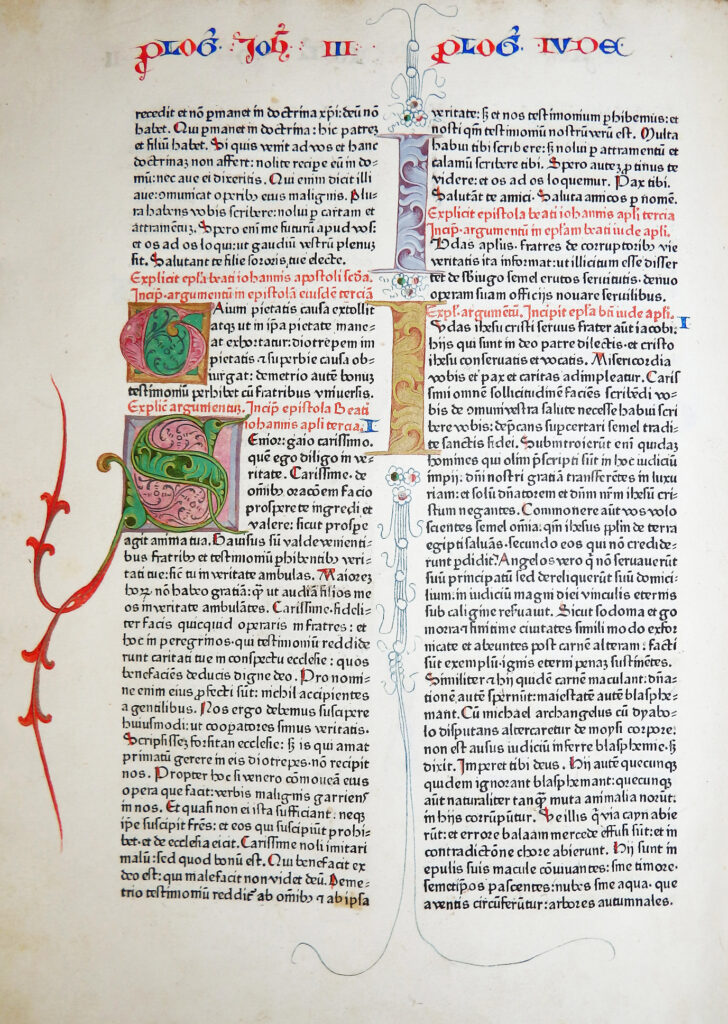 PLOG̃. Joh̃. III
PLOG̃. IVDE
recedit et nõ ꝑmanet in doctrina xp̃i: deũ nõ
habet. Qui ꝑmanet in doctrina: hic patrez
et filiũ habet. Si quis venit ad vos et hanc
doctrinaz non affert: nolite recipe eũ in do⸗
mũ: nec aue ei dixeritis. Qui enim dicit illi
aue: omunicat operibꝰ eius malignis. Plu⸗
ra habens vobis scribere: nolui ꝑ cartam et
attramentũ. Spero eni me futurũ apud vos:
et os ad os loqui: ut gaudiũ vestrũ plenuz
sit. Salutant te filie sororis, tue electe.
Explicit epl̃a beati iohannis apostoli scd̃a.
Incip̃. argumentũ in epistolã eiusdẽ terciã
GAium pietatis causa extollit
atq̃ ut in ip̃a pietate mane⸗
at exhortatur: diotrepem im
pietatis ⁊ superbie causa ob⸗
iurgat: demetrio autẽ bonuz
testimoniũ perhibet cũ fratribus vniuersis.
Explic̃ argumentuz. Incip̃ epistola Beati
iohannis apl̃i tercia. I
SEnior: gaio carissimo.
quẽ ego diligo in ve⸗
ritate. Carissime. de
om̃ibꝰ orac̃oem facio
prospere te ingredi et
valere: sicut prospe
agit anima tua. Gauisus sũ valde venienti⸗
bus fratribꝰ et testimoniũ ꝑhibentibꝰ veri⸗
tati tue: sic̃ tu in veritate ambulas. Maiorez
hoꝝ nõ habeo gratiã: q̃ ut audiã filios me
os in veritate ambulãtes. Carissime. fideli⸗
ter facis quicquid operaris in fratres: et
hoc in peregrinos. qui testimoniũ reddide
runt caritati tue in conspectu ecclesie: quos
benefaciẽs deducis digne deo. Pro nomi⸗
ne enim eius ꝓfecti sũt: nichil accipientes
a gentilibus. Nos ergo debemus suscipere
huiusmodi: ut coopatores simus veritatis.
Scripsissez forsitan ecclesie: sꝫ is qui amat
primatũ gerere in eis diotrepes. nõ recipit
nos. Propter hoc si venero cõmoueã eius
opera que facit: verbis malignis garriens
in nos. Et quasi non ei ista sufficiant: neqꝫ
ip̃e suscipit fr̃es: et eos qui suscipiũt prohi
bet. et de ecclesia eicit. Carissime noli imitari
malũ: sed quod bonũ est. Qui benefacit ex
deo est: qui malefacit non videt deũ. Deme⸗
trio testimoniũ reddit̃ ab om̃ibꝰ ⁊ ab ipsa
veritate: sꝫ et nos testimonium ꝑhibemus: et
nosti qm̃ testimoniũ nostrũ verũ est. Multa
habui tibi scribere: sꝫ nolui ꝑ attramentũ et
calamũ scribere tibi. Spero autez ꝓtinus te
videre: et os ad os loquemur. Pax tibi.
Salutãt te amici. Saluta amicos ꝑ nomẽ.
Explicit epistola beati iohannis apl̃i tercia
Incip̃. argumentũ in epl̃am beati iude apl̃i.
IVdas apl̃us. fratres de corruptoribꝰ vie
veritatis ita informat: ut illicitum esse disser
tet de sbiugo semel erutos seruitutis. denuo
operam suam officijs nouare seruilibus.
Expl̃. argumentũ. Incipit epl̃a bt̃i iude apl̃i.
IVdas ihesu cristi seruus frater aũt iacobi. I
hijs qui sunt in deo patre dilectis. et cristo
ihesu conseruatis et vocatis. Misericordia
vobis et pax et caritas adimpleatur. Caris
simi omnem sollicitudinẽ faciẽs scribẽdi vo⸗
bis de omuni vestra salute necesse habui scri
bere vobis: dep̃cans supcertari semel tradi⸗
te sanctis fidei. Submtroierũt eni quidaz
homines qui olim p̃scripti sũt in hoc iudiciũ
impij: dn̄i nostri gratiã transferẽtes in luxu
riam: et solũ dñatorem et dũm nr̃m ihesũ cri⸗
stum negantes. Commonere aũt vos volo
scientes semel omnia. qm̃ ihesus pplm̃ de terra
egipti saluãs. secundo eos qui nõ credide⸗
runt ꝑdidit. Angelos vero q̃ nõ seruauerũt
suũ principatũ sed dereliquerũt suũ domici⸗
lium: in iudiciũ magni diei vinculis eternis
sub caligine reseruauit. Sicut sodoma et go
morra ⁊ finitime ciuitates simili modo exfor
nicate et abeuntes post carnẽ alteram: facti
sũt exemplũ. ignis eterni penaz sustinẽtes.
Similiter ⁊ hij quidẽ carnẽ maculant: dña⸗
tionẽ autẽ spernũt: maiestatẽ autẽ blasphe⸗
mant. Cũ michael archangelus cũ dyabo⸗
lo disputans altercaretur de moysi corpore:
non est ausus iudiciũ inferre blasphemie. sꝫ
dixit. Imperet tibi deus. Hij autẽ quecunqꝫ
quidem ignorant blasphemant: quecunqꝫ
aũt naturaliter tanq̃ muta animalia norũt:
in hijs corrũpũtur. Ve illis q̃ via cayn abie
rũt: et errore balaam mercede effusi sũt: et in
contradictõne chore abierunt. Hij sunt in
epulis suis macule cõuiuantes: sine timore.
semetip̃os pascentes: nubes sine aqua. que
a ventis circũferũtur: arbores autumnales.